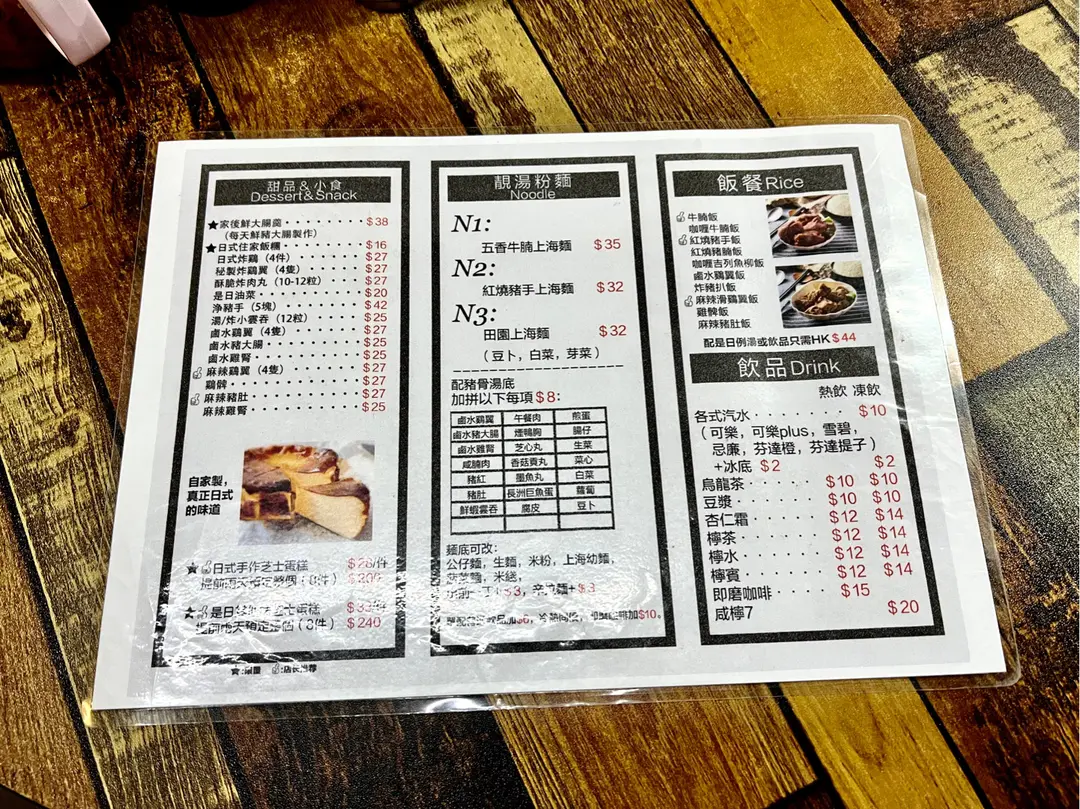 甜品&小食
Dessert&Snack
★家後鮮大腸羹 $38
(每天鮮豬大腸製作)
★日式住家飯糰 $16
日式炸鷄(4件) $27
秘製炸鷄翼(4隻) $27
酥脆炸肉丸(10-12粒) $27
是日油菜 $20
净豬手(5塊) $42
湯/炸小雲吞(12粒) $25
鹵水鷄翼(4隻) $27
鹵水豬大腸 $25
鹵水雞腎 $25
麻辣鷄翼(4隻) $27
鷄髀 $27
麻辣豬肚 $27
麻辣雞腎 $25
自家製,
真正日式
的味道
★日式手作芝士蛋糕 $28/件
提前兩天預定整個(8件) $200
★是日 芝士蛋糕 $33/件
天預定整個(8件) $240
★:限量 :店长推荐
靚湯粉麵
Noodle
N1:
五香牛腩上海麵 $35
N2:
紅燒豬手上海麵 $32
N3:
田園上海麵 $32
(豆卜,白菜,芽菜)
配豬骨湯底
加拼以下每項$8:
鹵水鷄翼 午餐肉 煎蛋
鹵水豬大腸 煙鴨胸 腸仔
鹵水雞腎 芝心丸 生菜
咸腩肉 香菇貢丸 菜心
豬紅 墨魚丸 白菜
豬肚 長洲巨魚蛋 蘿蔔
鮮蝦雲吞 腐皮 豆卜
麵底可改:
公仔麵,生麵,米粉,上海幼麵,
菠菜麵,米綫,
$3,辛拉麵+$3
加$10。
飯餐Rice
牛腩飯
咖喱牛腩飯
紅燒豬手飯
紅燒豬腩飯
咖喱吉列魚柳飯
鹵水鷄翼飯
炸豬扒飯
麻辣滑鷄翼飯
雞髀飯
麻辣豬肚飯
配是日例湯或飲品只需HK$44
飲品Drink
熱飲 凍飲
各式汽水 $10
(可樂,可樂plus,雪碧,
忌廉,芬達橙,芬達提子)
+冰底 $2 $2
烏龍茶 $10 $10
豆漿 $10 $10
杏仁霜 $12 $14
檸茶 $12 $14
檸水 $12 $14
檸賓 $12 $14
即磨咖啡 $15
咸檸7 $20